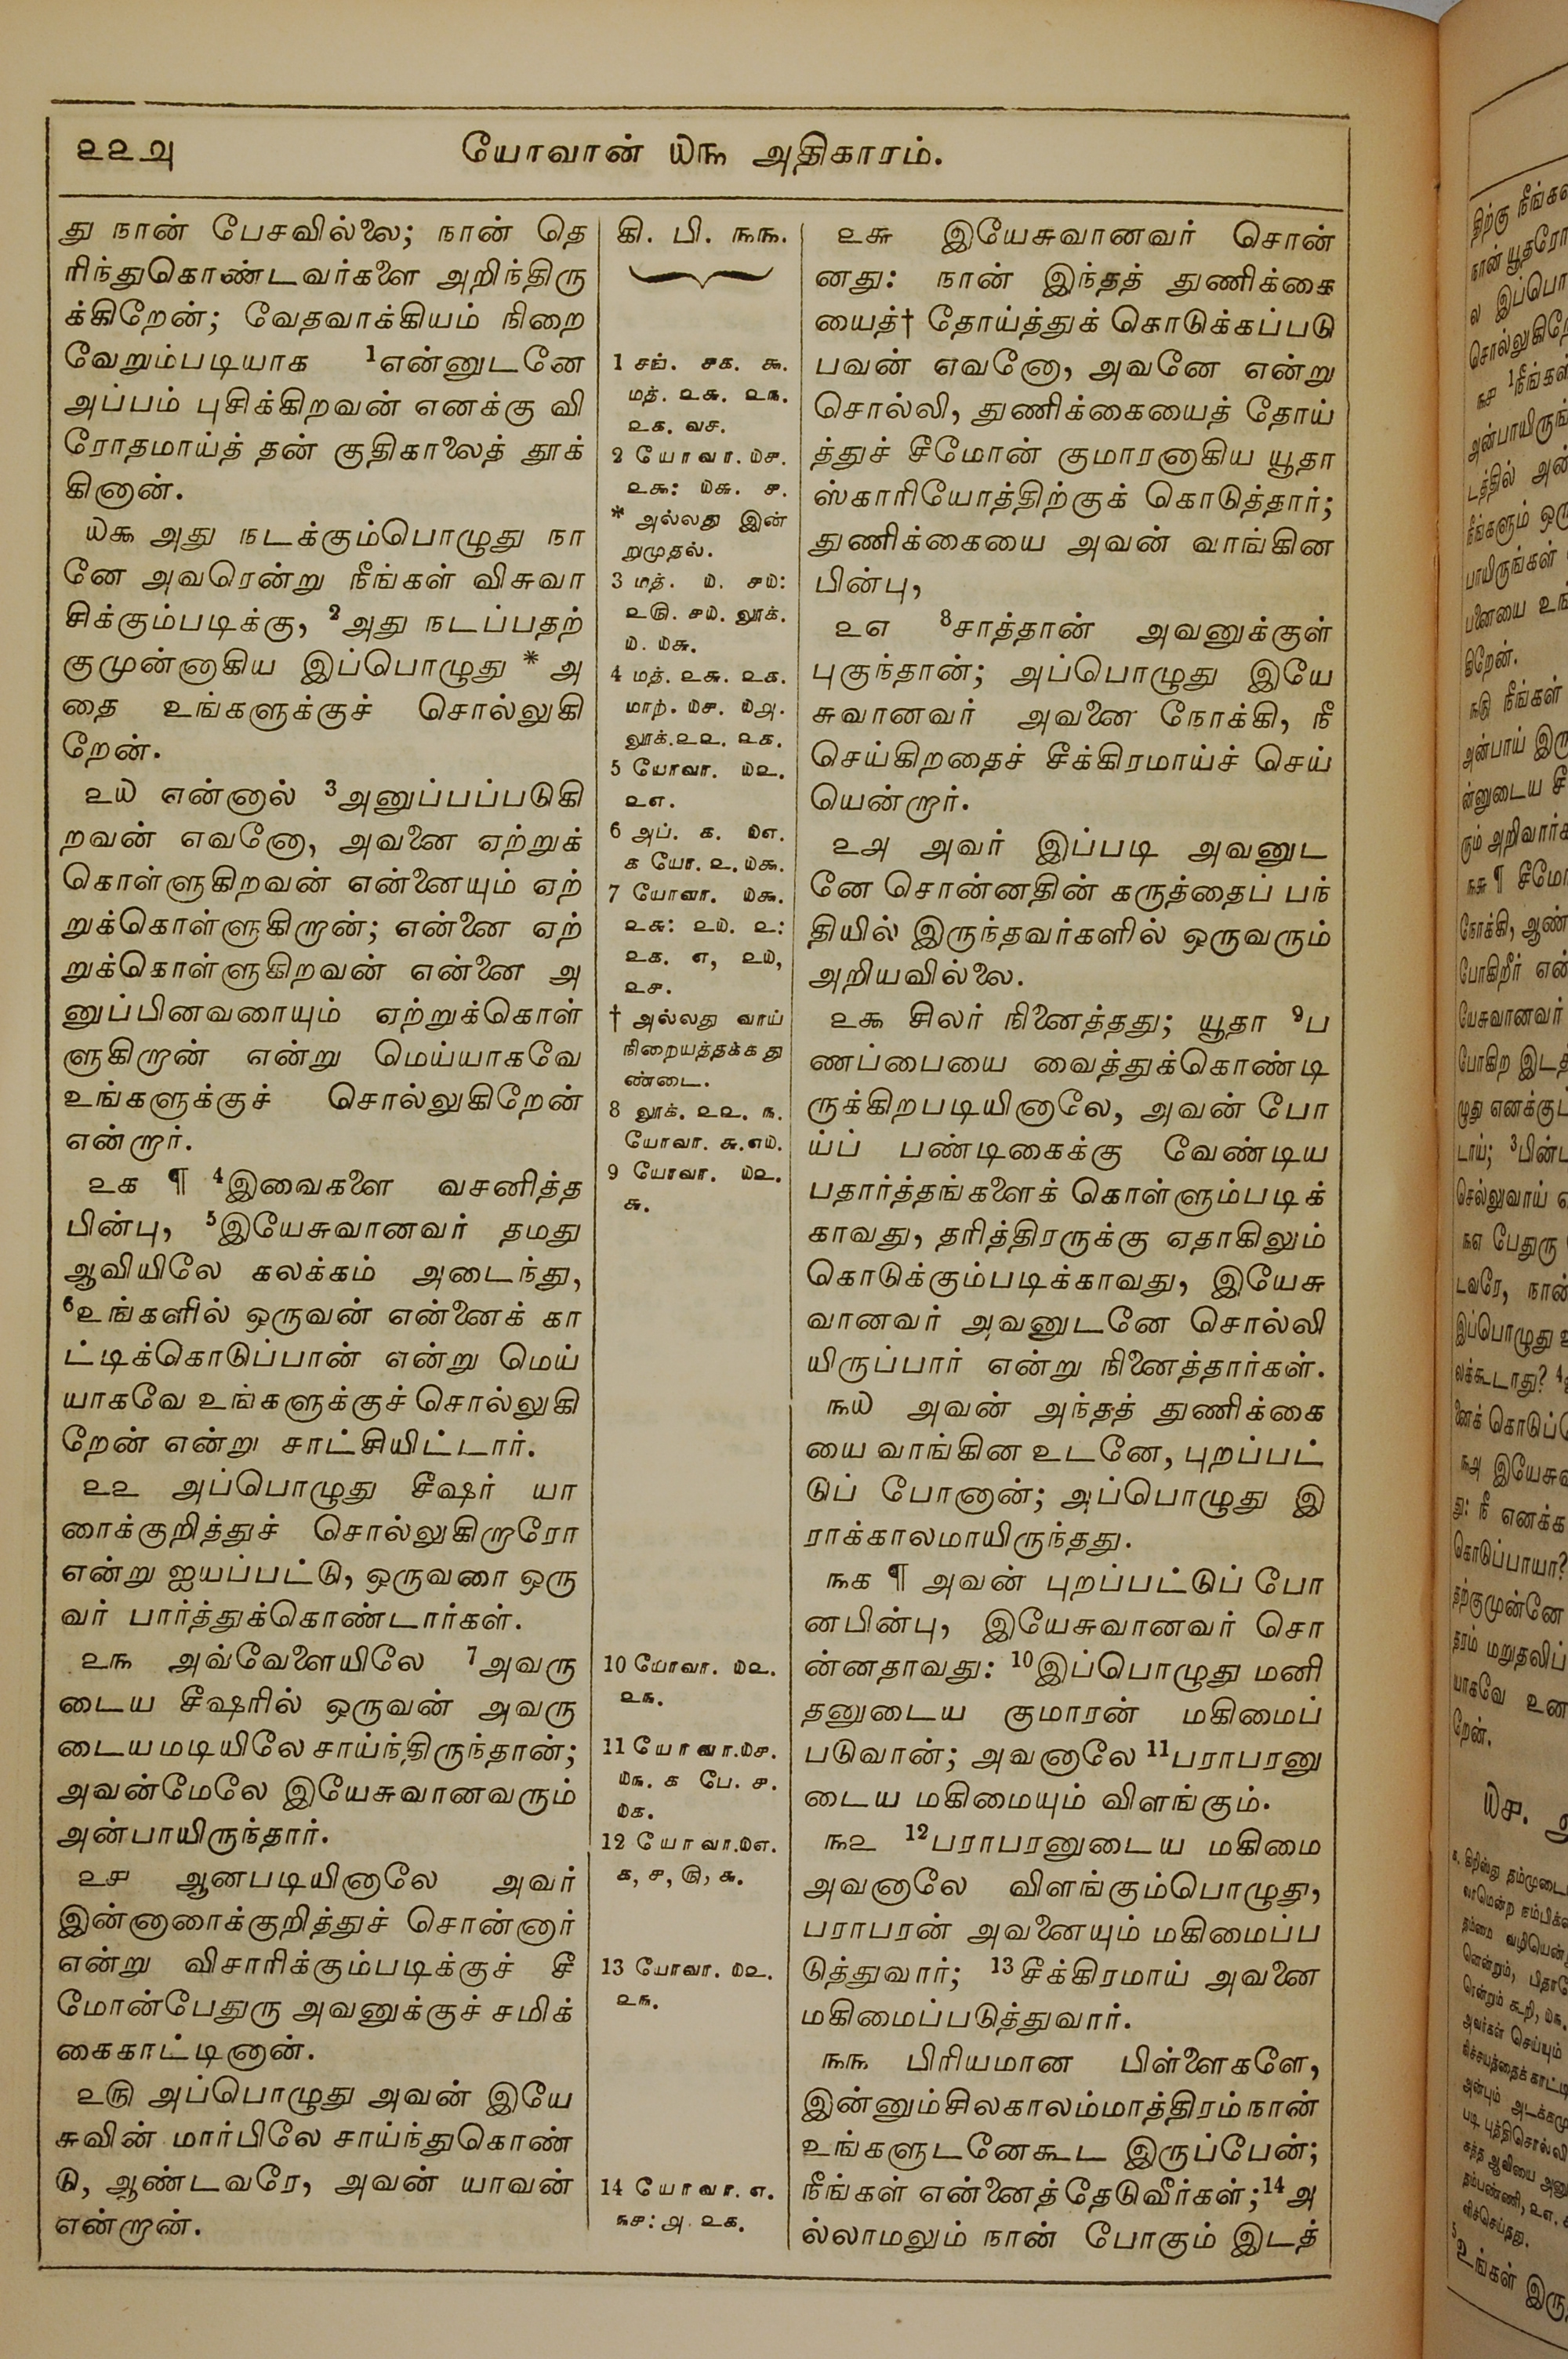 ௨௨௮
யோவான் ௰௩ அதிகாரம்.
து நான் பேசவில்லை; நான் தெ
ரிந்துகொண்டவர்களை அறிந்திரு
க்கிறேன்; வேதவாக்கியம் நிறை
வேறும்படியாக 1என்னுடனே
அப்பம் புசிக்கிறவன் எனக்கு வி
ரோதமாய்த் தன் குதிகாலைத் தூக்
கினான்.
௰௯ அது நடக்கும்பொழுது நா
னே அவரென்று நீங்கள் விசுவா
சிக்கும்படிக்கு, 2அது நடப்பதற்
குமுன்னாகிய இப்பொழுது * அ
தை உங்களுக்குச் சொல்லுகி
றேன்.
௨௰ என்னால் 3அனுப்பப்படுகி
றவன் எவனோ, அவனை ஏற்றுக்
கொள்ளுகிறவன் என்னையும் ஏற்
றுக்கொள்ளுகிறான்; என்னை ஏற்
றுக்கொள்ளுகிறவன் என்னை அ
னுப்பினவரையும் ஏற்றுக்கொள்
ளுகிறான் என்று மெய்யாகவே
உங்களுக்குச் சொல்லுகிறேன்
என்றார்.
௨௧ ¶ 4இவைகளை வசனித்த
பின்பு, 5இயேசுவானவர் தமது
ஆவியிலே கலக்கம் அடைந்து,
6உங்களில் ஒருவன் என்னைக் கா
ட்டிக்கொடுப்பான் என்று மெய்
யாகவே உங்களுக்குச் சொல்லுகி
றேன் என்று சாட்சியிட்டார்.
௨௨ அப்பொழுது சீஷர் யா
ரைக்குறித்துச் சொல்லுகிறாரோ
என்று ஐயப்பட்டு, ஒருவரை ஒரு
வர் பார்த்துக்கொண்டார்கள்.
௨௩ அவ்வேளையிலே 7அவரு
டைய சீஷரில் ஒருவன் அவரு
டையமடியிலே சாய்ந்திருந்தான்;
அவன்மேலே இயேசுவானவரும்
அன்பாயிருந்தார்.
௨௪ ஆனபடியினாலே அவர்
இன்னாரைக்குறித்துச் சொன்னார்
என்று விசாரிக்கும்படிக்குச் சீ
மோன்பேதுரு அவனுக்குச் சமிக்
கைகாட்டினான்.
௨௫ அப்பொழுது அவன் இயே
சுவின் மார்பிலே சாய்ந்துகொண்
டு, ஆண்டவரே, அவன் யாவன்
என்றான்.
கி. பி. ௩௩.
1 சங். ௪௧. ௯.
மத். ௨௬. ௨௩.
௨௧. வச.
2 யோவா. ௰௪.
௨௯: ௰௬. ௪.
* அல்லது இன்
றுமுதல்.
3 மத். ௰. ௪௰:
௨௫. ௪௰. லூக்.
௰. ௰௬.
4 மத். ௨௬. ௨௧.
மாற். ௰௪. ௰௮.
லூக்.௨௨. ௨௧.
5 யோவா. ௰௨.
௨௭.
6 அப். ௧. ௰௭.
௧ யோ. ௨. ௰௯.
7 யோவா. ௰௯.
௨௬: ௨௰. ௨:
௨௧. ௭, ௨௰,
௨௪.
† அல்லது வாய்
நிறையத்தக்க து
ண்டை.
8 லூக். ௨௨. ௩.
யோவா. ௬.௭௰.
9 யோவா. ௰௨.
௬.
10 யோவா. ௰௨.
௨௩.
11 யோவா.௰௪.
௰௩. ௧ பே. ௪.
௰௧.
12 யோவா.௰௭.
௧, ௪, ௫, ௬.
13 யோவா. ௰௨.
௨௩.
14 யோவா. ௭.
௩௪: ௮. ௨௧.
௨௬ இயேசுவானவர் சொன்
னது: நான் இந்தத் துணிக்கை
யைத்† தோய்த்துக் கொடுக்கப்படு
பவன் எவனோ, அவனே என்று
சொல்லி, துணிக்கையைத் தோய்
த்துச் சீமோன் குமாரனாகிய யூதா
ஸ்காரியோத்திற்குக் கொடுத்தார்;
துணிக்கையை அவன் வாங்கின
பின்பு,
௨௭ 8சாத்தான் அவனுக்குள்
புகுந்தான்; அப்பொழுது இயே
சுவானவர் அவனை நோக்கி, நீ
செய்கிறதைச் சீக்கிரமாய்ச் செய்
யென்றார்.
௨௮ அவர் இப்படி அவனுட
னே சொன்னதின் கருத்தைப் பந்
தியில் இருந்தவர்களில் ஒருவரும்
அறியவில்லை.
௨௯ சிலர் நினைத்தது; யூதா 9ப
ணப்பையை வைத்துக்கொண்டி
ருக்கிறபடியினாலே, அவன் போ
ய்ப் பண்டிகைக்கு வேண்டிய
பதார்த்தங்களைக் கொள்ளும்படிக்
காவது, தரித்திரருக்கு ஏதாகிலும்
கொடுக்கும்படிக்காவது, இயேசு
வானவர் அவனுடனே சொல்லி
யிருப்பார் என்று நினைத்தார்கள்.
௩௰ அவன் அந்தத் துணிக்கை
யை வாங்கின உடனே, புறப்பட்
டுப் போனான்; அப்பொழுது இ
ராக்காலமாயிருந்தது.
௩௧ ¶ அவன் புறப்பட்டுப் போ
னபின்பு, இயேசுவானவர் சொ
ன்னதாவது: 10இப்பொழுது மனி
தனுடைய குமாரன் மகிமைப்
படுவான்; அவனாலே 11பராபரனு
டைய மகிமையும் விளங்கும்.
௩௨ 12பராபரனுடைய மகிமை
அவனாலே விளங்கும்பொழுது,
பராபரன் அவனையும் மகிமைப்ப
டுத்துவார்; 13சீக்கிரமாய் அவனை
மகிமைப்படுத்துவார்.
௩௩ பிரியமான பிள்ளைகளே,
இன்னும்சிலகாலம்மாத்திரம்நான்
உங்களுடனேகூட இருப்பேன்;
நீங்கள் என்னைத்தேடுவீர்கள்;14அ
ல்லாமலும் நான் போகும் இடத்
திற்கு
நான் யூதரோ
ல இப்பொ
சொல்லுகிறே
௩௪ 1நீங்கள்
அன்பாயிருங்
டத்தில் அன்
நீங்களும் ஒரு
பாயிருங்கள்
கிறேன்.
௩௫ நீங்கள்
அன்பாய் இரு
ன்னுடைய சீ
ரும் அறிவார்க
௩௬ ¶ சீமோ
நோக்கி, ஆண்
போகிறீர் என்
யேசுவானவர்
போகிற இடத்
ழுது எனக்குப்
டாய்; 3பின்ப
செல்லுவாய்
௩௭ பேதுரு
டவரே, நான்
இப்பொழுது
லக்கூடாது?
னைக் கொடுப்பே
௩௮ இயேசுவ
து: நீ எனக்க
கொடுப்பாயா?
தற்குமுன்னே
தரம் மறுதலிப்
யாகவே உன
றேன்.
௰௪.
உங்கள் இரு